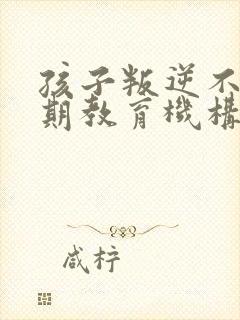 孩子叛逆不
期教育機構
咸柠